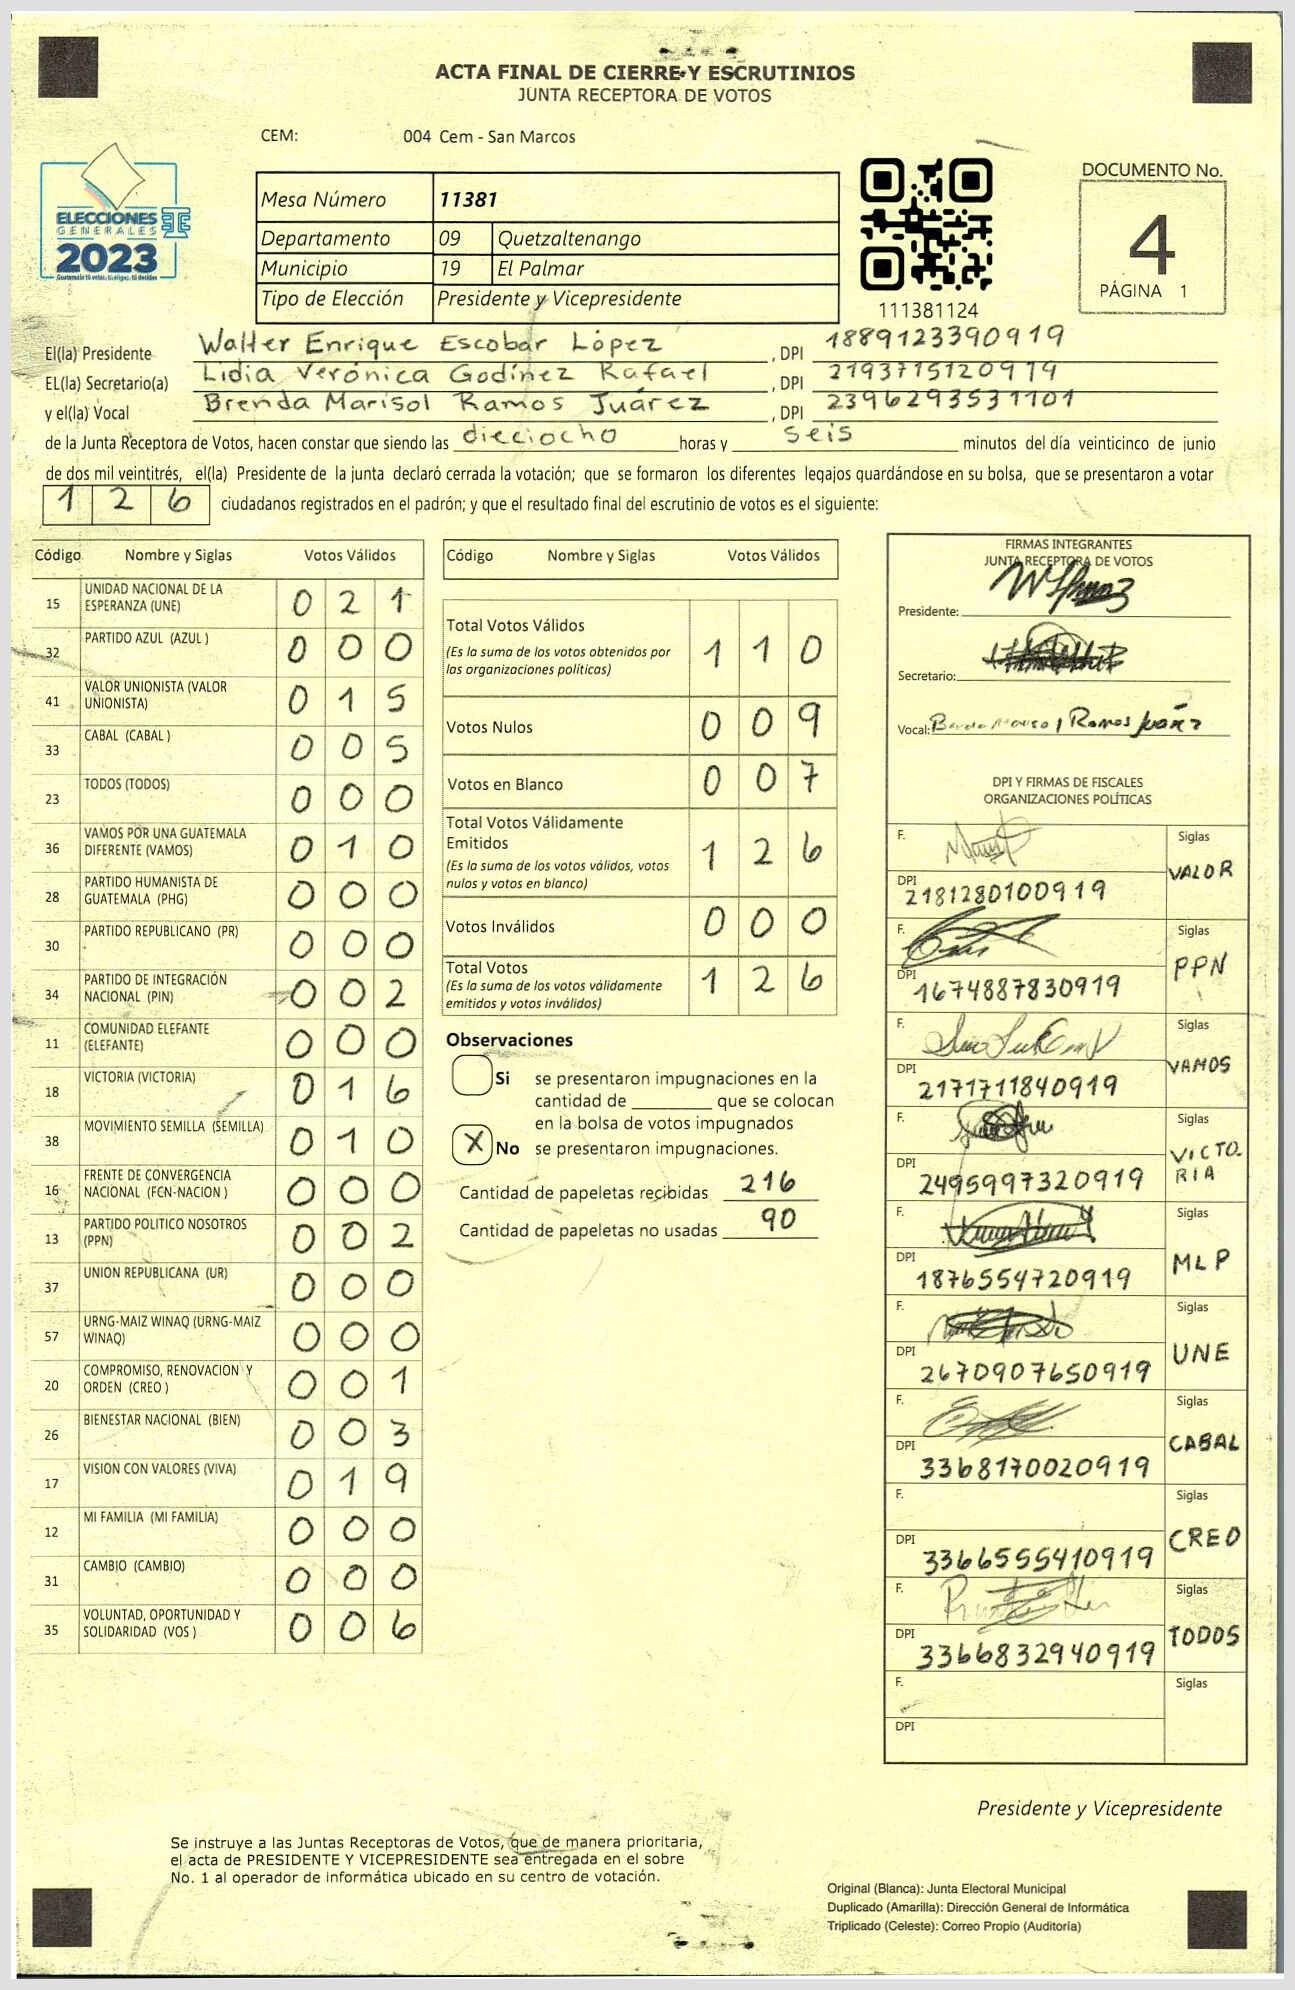 ACTA FINAL DE CIERRE Y ESCRUTINIOS
JUNTA RECEPTORA DE VOTOS
CEM: 004 Cem - San Marcos
ELECCIONES
GENERALES
2023
Mesa Número 11381
Departamento 09 Quetzaltenango
Municipio 19 El Palmar
Tipo de Elección Presidente y Vicepresidente
111381124
DOCUMENTO No.
4
PÁGINA 1
El(la) Presidente Walter Enrique Escobar López , DPI 1889123390919
EL(la) Secretario(a) Lidia Verónica Godínez Rafael , DPI 2193715120919
y el(la) Vocal Brenda Marisol Ramos Juárez , DPI 2396293531101
de la Junta Receptora de Votos, hacen constar que siendo las dieciocho horas y seis minutos del día veinticinco de junio
de dos mil veintitrés, el(la) Presidente de la junta declaró cerrada la votación; que se formaron los diferentes legajos guardándose en su bolsa, que se presentaron a votar
1 2 6 ciudadanos registrados en el padrón; y que el resultado final del escrutinio de votos es el siguiente:
Código Nombre y Siglas Votos Válidos
15 UNIDAD NACIONAL DE LA ESPERANZA (UNE) 0 2 1
32 PARTIDO AZUL (AZUL ) 0 0 0
41 VALOR UNIONISTA (VALOR UNIONISTA) 0 1 5
33 CABAL (CABAL ) 0 0 5
23 TODOS (TODOS) 0 0 0
36 VAMOS POR UNA GUATEMALA DIFERENTE (VAMOS) 0 1 0
28 PARTIDO HUMANISTA DE GUATEMALA (PHG) 0 0 0
30 PARTIDO REPUBLICANO (PR) 0 0 0
34 PARTIDO DE INTEGRACIÓN NACIONAL (PIN) 0 0 2
11 COMUNIDAD ELEFANTE (ELEFANTE) 0 0 0
18 VICTORIA (VICTORIA) 0 1 6
38 MOVIMIENTO SEMILLA (SEMILLA) 0 1 0
16 FRENTE DE CONVERGENCIA NACIONAL (FCN-NACION ) 0 0 0
13 PARTIDO POLITICO NOSOTROS (PPN) 0 0 2
37 UNION REPUBLICANA (UR) 0 0 0
57 URNG-MAIZ WINAQ (URNG-MAIZ WINAQ) 0 0 0
20 COMPROMISO, RENOVACION Y ORDEN (CREO ) 0 0 1
26 BIENESTAR NACIONAL (BIEN) 0 0 3
17 VISION CON VALORES (VIVA) 0 1 9
12 MI FAMILIA (MI FAMILIA) 0 0 0
31 CAMBIO (CAMBIO) 0 0 0
35 VOLUNTAD, OPORTUNIDAD Y SOLIDARIDAD (VOS ) 0 0 6
Código Nombre y Siglas Votos Válidos
Total Votos Válidos 1 1 0
(Es la suma de los votos obtenidos por
las organizaciones políticas)
Votos Nulos 0 0 9
Votos en Blanco 0 0 7
Total Votos Válidamente
Emitidos 1 2 6
(Es la suma de los votos válidos, votos
nulos y votos en blanco)
Votos Inválidos 0 0 0
Total Votos 1 2 6
(Es la suma de los votos válidamente
emitidos y votos inválidos)
Observaciones
Si se presentaron impugnaciones en la
cantidad de ________ que se colocan
en la bolsa de votos impugnados
X No se presentaron impugnaciones.
Cantidad de papeletas recibidas 216
Cantidad de papeletas no usadas 90
FIRMAS INTEGRANTES
JUNTA RECEPTORA DE VOTOS
Presidente:
Secretario:
Vocal: Ramos Juárez
DPI Y FIRMAS DE FISCALES
ORGANIZACIONES POLÍTICAS
F. Siglas
VALOR
DPI 2181280100919
F. Siglas
PPN
DPI 1674887830919
F. Siglas
VAMOS
DPI 2171711840919
F. Siglas
VICTO.
RIA
DPI 2495997320919
F. Siglas
MLP
DPI 1876554720919
F. Siglas
UNE
DPI 2670907650919
F. Siglas
CABAL
DPI 3368170020919
F. Siglas
CREO
DPI 3366555410919
F. Siglas
TODOS
DPI 3366832940919
F. Siglas
DPI
Presidente y Vicepresidente
Se instruye a las Juntas Receptoras de Votos, que de manera prioritaria,
el acta de PRESIDENTE Y VICEPRESIDENTE sea entregada en el sobre
No. 1 al operador de informática ubicado en su centro de votación.
Original (Blanca): Junta Electoral Municipal
Duplicado (Amarilla): Dirección General de Informática
Triplicado (Celeste): Correo Propio (Auditoría)